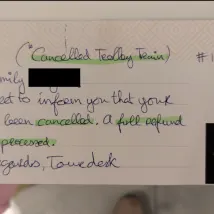 (*Cancelled Trolley Train) #1
mily
et to inform you that your
been cancelled. A full refund
processed.
egards, Tourdesk